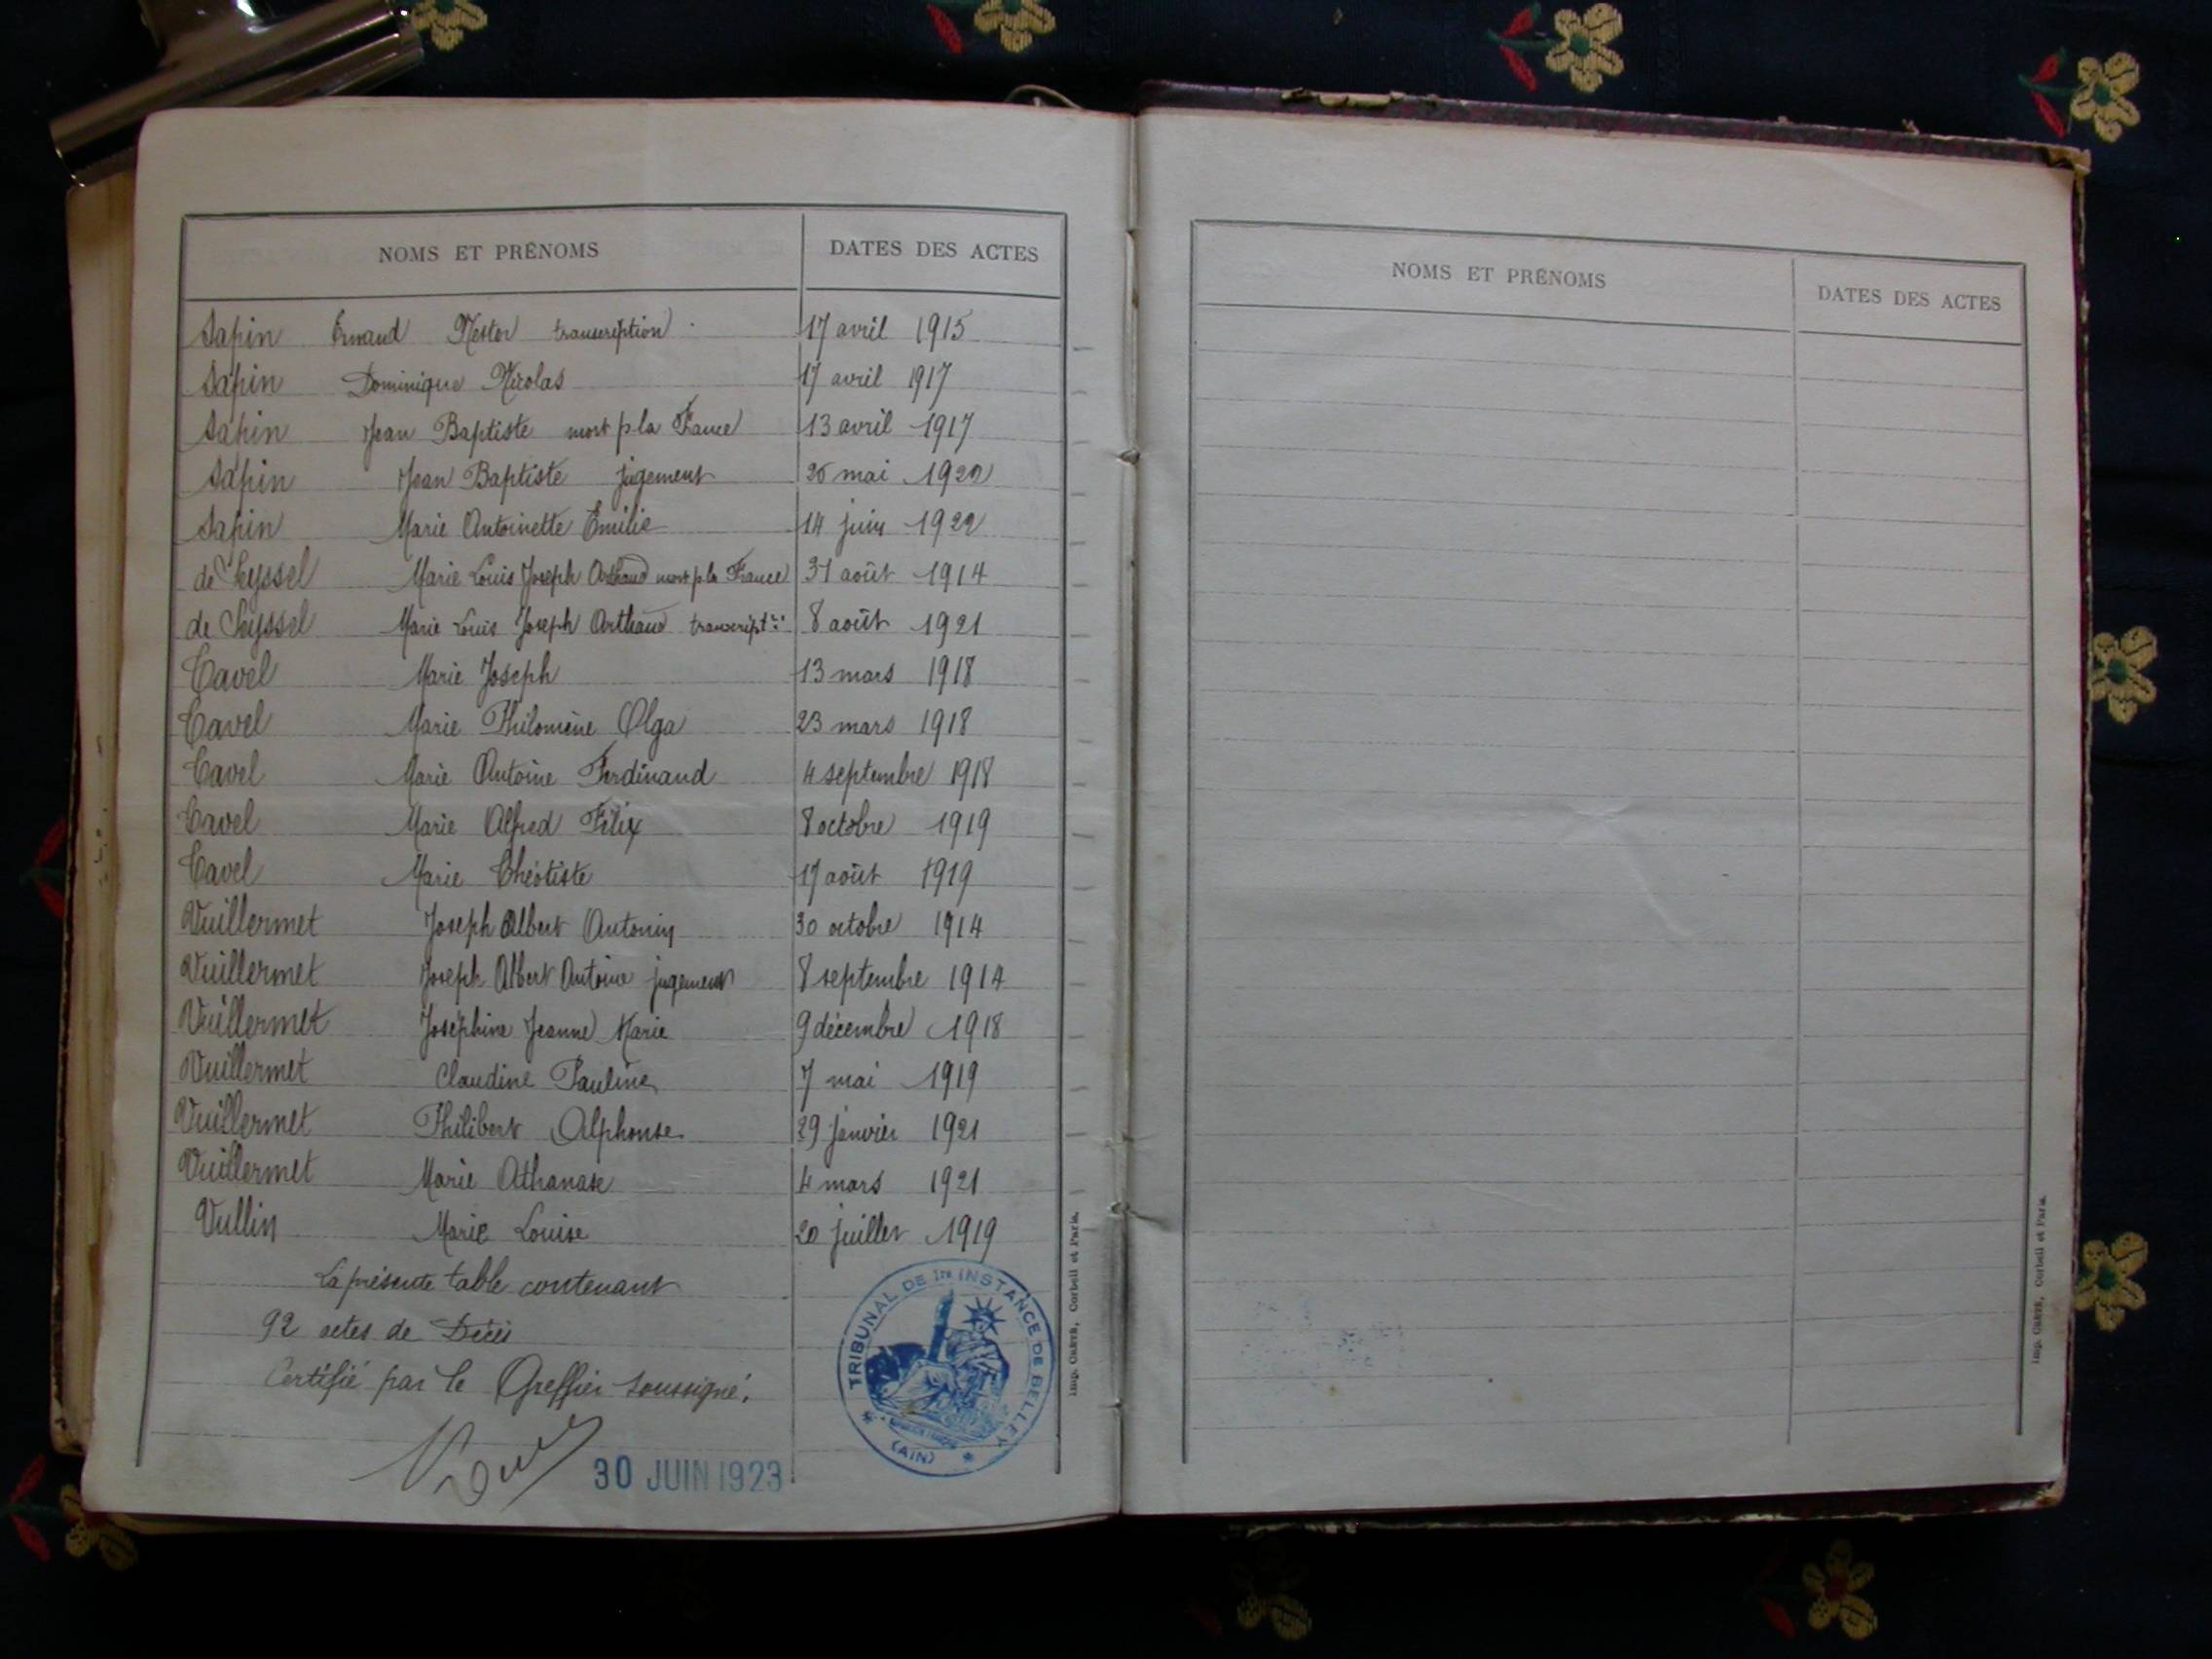 NOMS ET PRÉNOMS DATES DES ACTES
Sapin Ernaud Nestor transcription 17 avril 1915
Sapin Dominique Nicolas 17 avril 1917
Sapin Jean Baptiste mort p la France 13 avril 1917
Sapin Jean Baptiste jugement mai 1920
Sapin Marie Antoinette Emilie 14 juin 1922
de Seyssel Marie Louis Joseph Arthaud mort p la France 31 août 1914
de Seyssel Marie Louis Joseph Arthaud transcript.on 8 août 1921
Tavel Marie Joseph 13 mars 1918
Tavel Marie Philomène Olga 23 mars 1918
Tavel Marie Antoine Ferdinand 4 septembre 1918
Tavel Marie Alfred Félix 8 octobre 1919
Tavel Marie Théotiste 17 août 1919
Vuillermet Joseph Albert Antonin 30 octobre 1914
Vuillermet Joseph Albert Antoine jugement 8 septembre 1914
Vuillermet Joséphine Jeanne Marie 9 décembre 1918
Vuillermet Claudine Pauline 7 mai 1919
Vuillermet Philibert Alphonse 29 janvier 1921
Vuillermet Marie Athanase 4 mars 1921
Vullin Marie Louise 20 juillet 1919
La présente table contenant
92 actes de Décès
Certifié par le Greffier soussigné.
30 JUIN 1923
TRIBUNAL DE 1re INSTANCE DE BELLEY
(AIN)
Corbeil et Paris.
NOMS ET PRÉNOMS DATES DES ACTES
Corbeil et Paris.